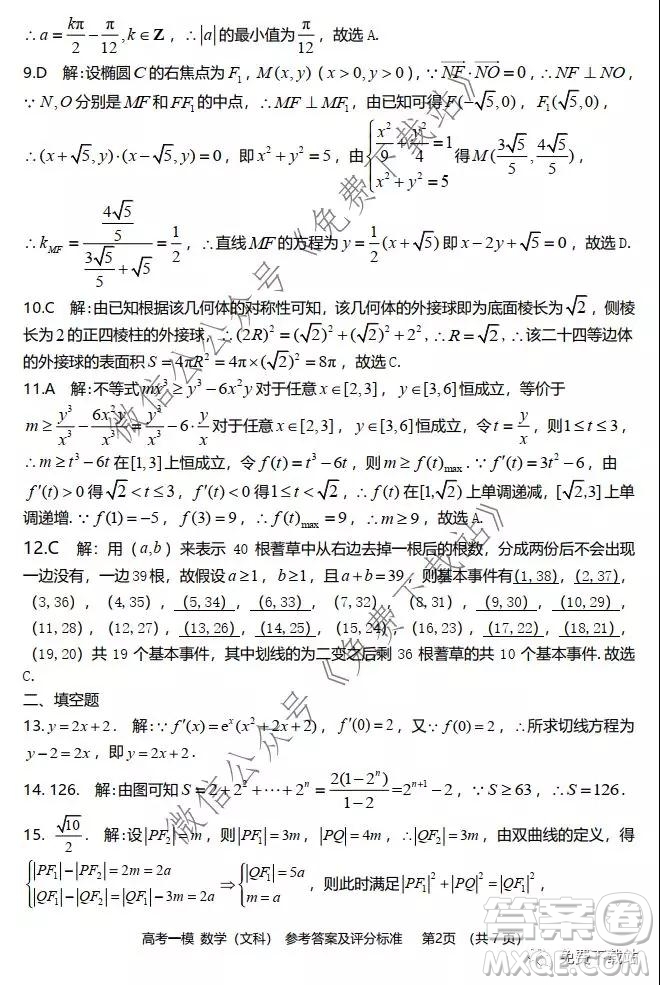 ∴a=kπ/2−π/12, k∈Z, ∴|a|的最小值为π/12, 故选 A.
9.D 解:设椭圆C的右焦点为F₁, M(x,y)(x>0,y>0), ∵NF·NO=0, ∴NF⊥NO,
∵N,O分别是MF和FF₁的中点, ∴MF⊥MF₁, 由已知可得F(−√5,0), F₁(√5,0),
∴(x+√5,y)·(x−√5,y)=0, 即x²+y²=5, 由{x²/9+y²/4=1, x²+y²=5 得M(3√5/5, 4√5/5),
∴k_MF=(4√5/5)/(3√5/5+√5)=1/2, ∴直线MF的方程为y=1/2(x+√5)即x−2y+√5=0, 故选 D.
10.C 解:由已知根据该几何体的对称性可知, 该几何体的外接球即为底面棱长为√2, 侧棱
长为2的正四棱柱的外接球, ∴(2R)²=(√2)²+(√2)²+2², ∴R=√2, ∴该二十四等边体
的外接球的表面积S=4πR²=4π×(√2)²=8π, 故选 C.
11.A 解:不等式mx³≥y³−6x²y对于任意x∈[2,3], y∈[3,6]恒成立, 等价于
m≥y³/x³−6x²y/x³=y³/x³−6·y/x对于任意x∈[2,3], y∈[3,6]恒成立, 令t=y/x, 则1≤t≤3,
∴m≥t³−6t在[1,3]上恒成立, 令f(t)=t³−6t, 则m≥f(t)max. ∵f′(t)=3t²−6, 由
f′(t)>0得√2<t≤3, f′(t)<0得1≤t<√2, ∴f(t)在[1,√2)上单调递减, [√2,3]上单
调递增. ∵f(1)=−5, f(3)=9, ∴f(t)max=9, ∴m≥9, 故选 A.
12.C 解: 用(a,b)来表示 40 根蓍草中从右边去掉一根后的根数, 分成两份后不会出现
一边没有, 一边39根, 故假设a≥1, b≥1, 且a+b=39, 则基本事件有(1,38), (2,37),
(3,36), (4,35), (5,34), (6,33), (7,32), (8,31), (9,30), (10,29),
(11,28), (12,27), (13,26), (14,25), (15,24), (16,23), (17,22), (18,21),
(19,20)共 19 个基本事件, 其中划线的为二变之后剩 36 根蓍草的共 10 个基本事件. 故选
C.
二、填空题
13. y=2x+2. 解: ∵f′(x)=eˣ(x²+2x+2), f′(0)=2, 又∵f(0)=2, ∴所求切线方程为
y−2=2x, 即y=2x+2.
14. 126. 解:由图可知S=2+2²+⋯+2ⁿ=2(1−2ⁿ)/(1−2)=2ⁿ⁺¹−2, ∵S≥63, ∴S=126.
15. √10/2. 解:设|PF₂|=m, 则|PF₁|=3m, |PQ|=4m, ∴|QF₂|=3m, 由双曲线的定义, 得
{|PF₁|−|PF₂|=2m=2a, |QF₁|−|QF₂|=|QF₁|−3m=2a ⇒ {|QF₁|=5a, m=a, 则此时满足|PF₁|²+|PQ|²=|QF₁|²,
高考一模 数学(文科) 参考答案及评分标准 第2页 (共 7 页)
微信公众号《免费下载站》
微信公众号《免费下载站》
免费下载站
MXQE.COM